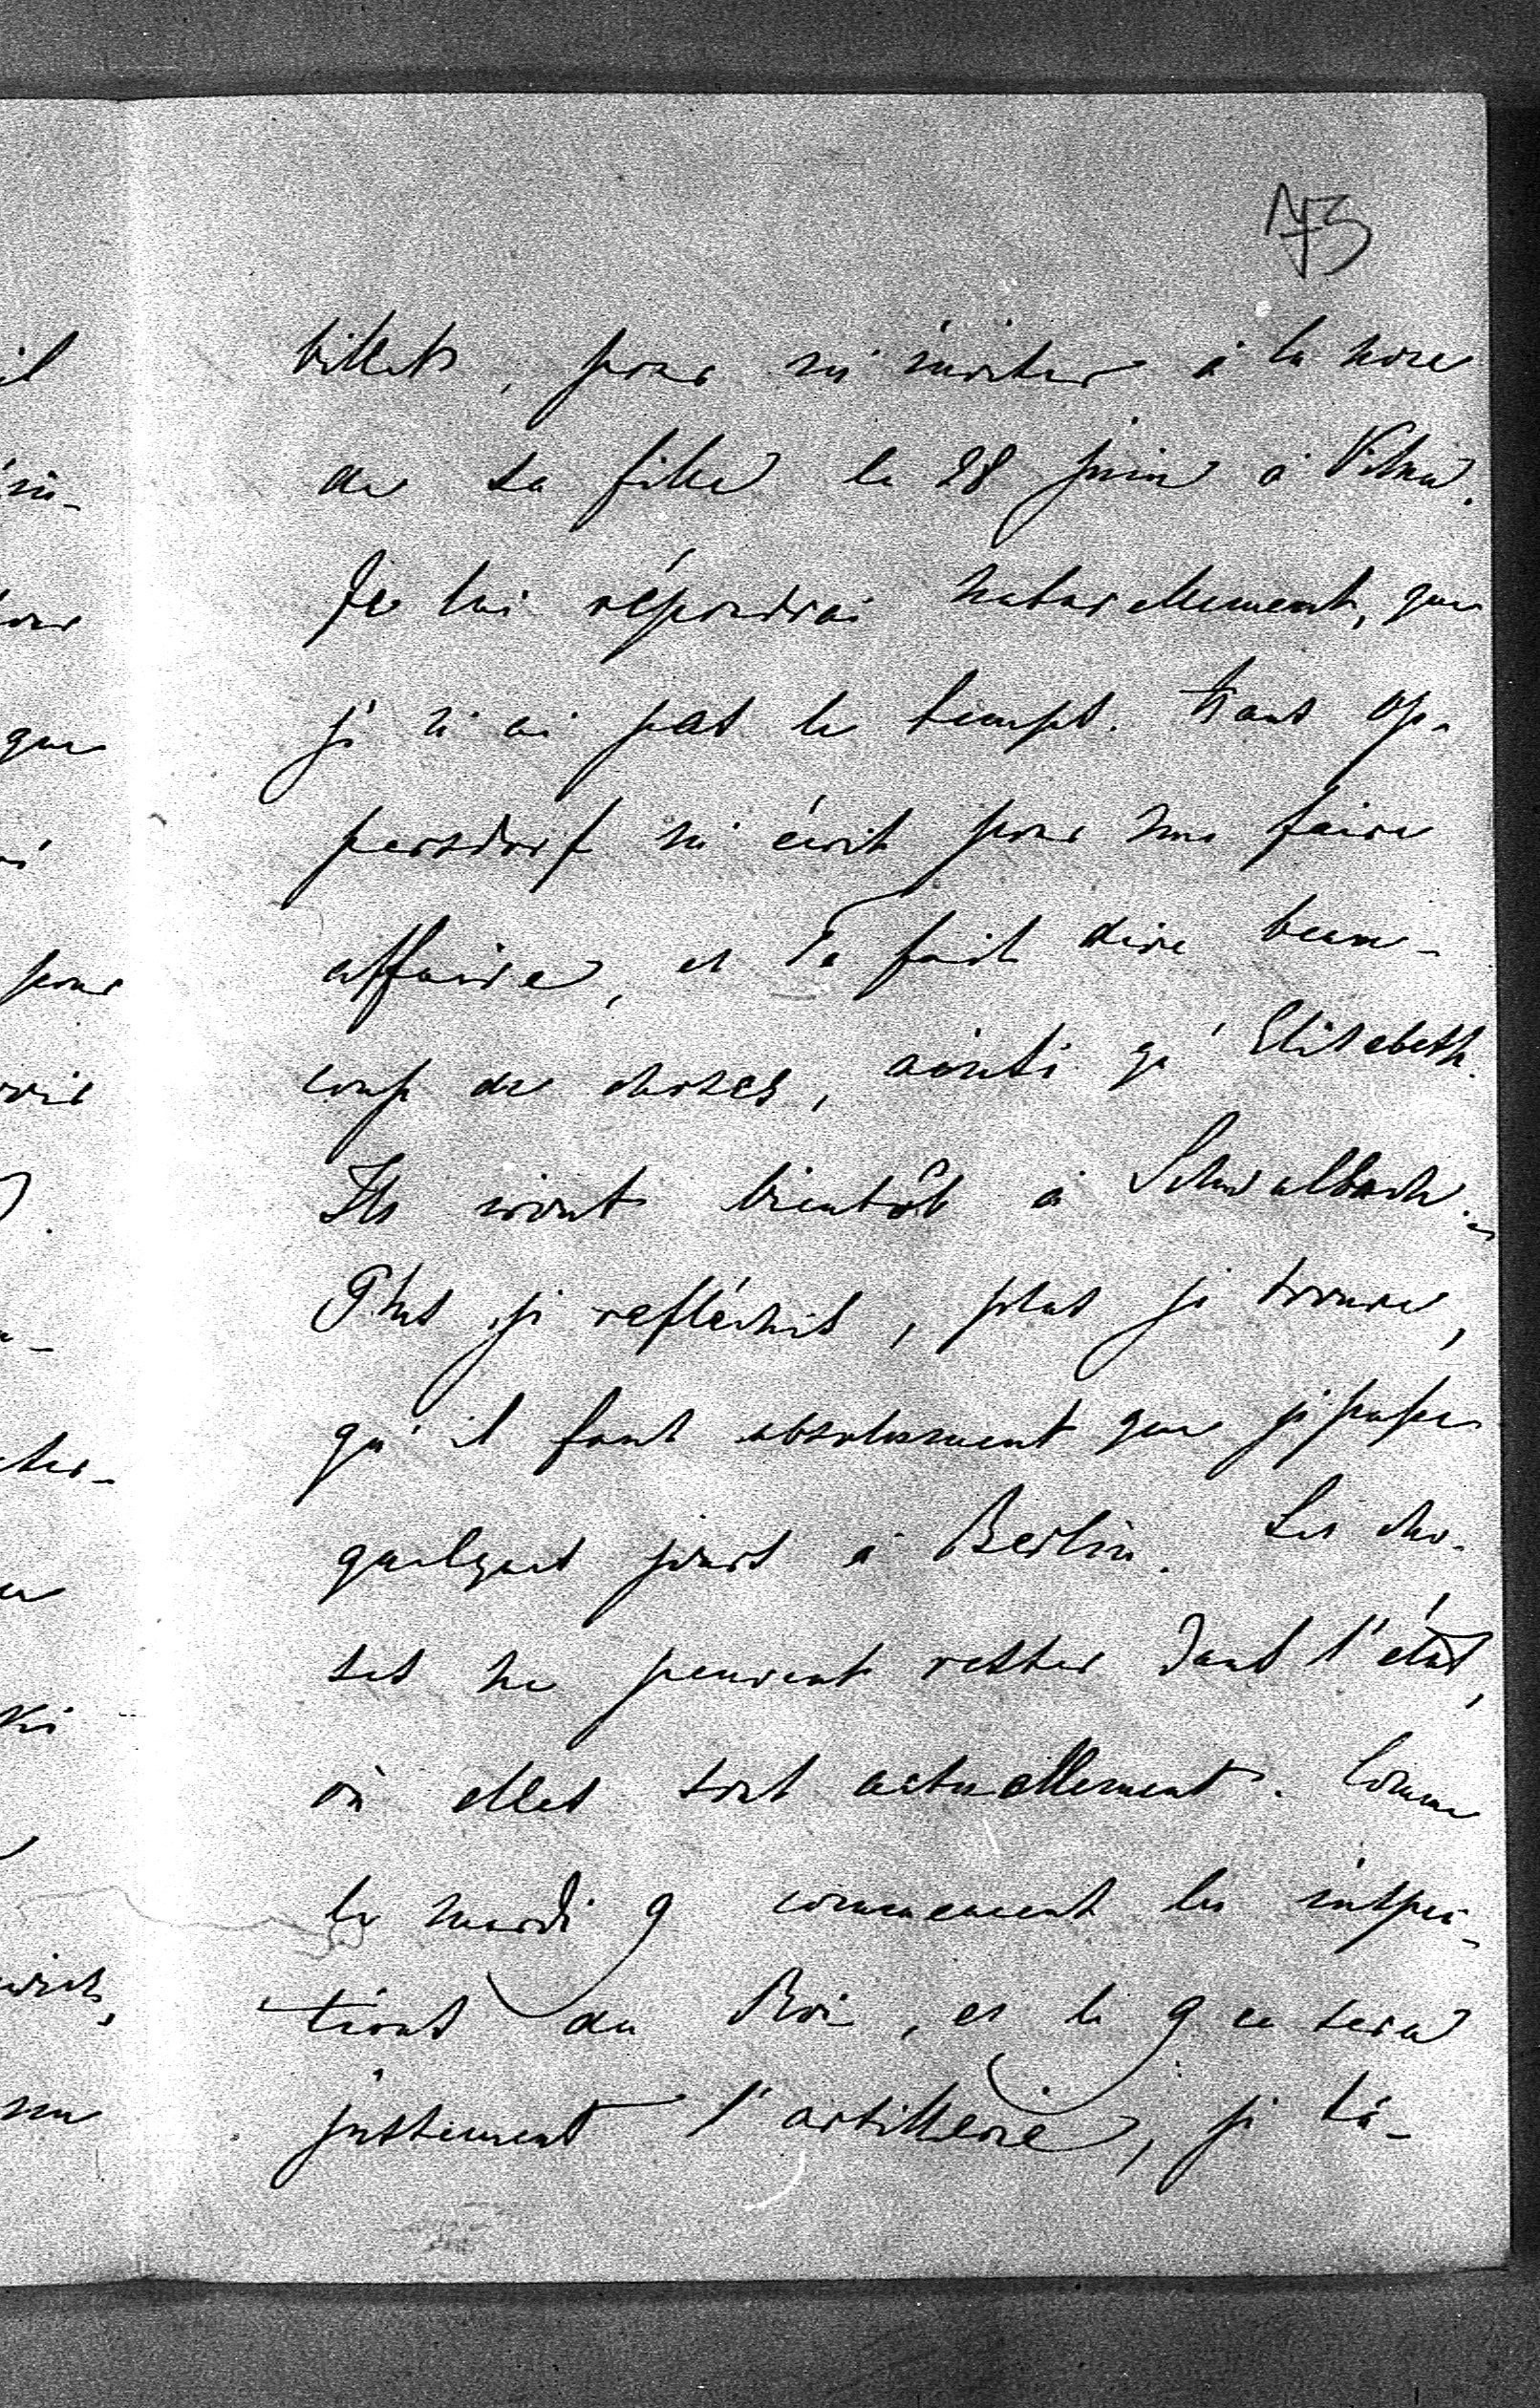 75
billets, pour m'inviter à la noce
de sa fille le 28 juin à Vilna.
Je lui répondrai naturellement, que
je n'ai pas le temps. Hans Op-
persdorf m'écrit pour une faire
affaire, et Te fait dire beau-
coup de choses, ainsi qu'Elisabeth.
Ils iront bientôt à Schwalbach.-
Plus je refléchis, plus je trouve,
qu'il faut absolument que je passe
quelques jours à Berlin. Les cho-
ses ne peuvent rester dans l'état,
où elles sont actuellement. Comme
le mardi 9 commencent les inspec-
tions du Roi, et le 9 ce sera
justement l'artillerie, je tâ-